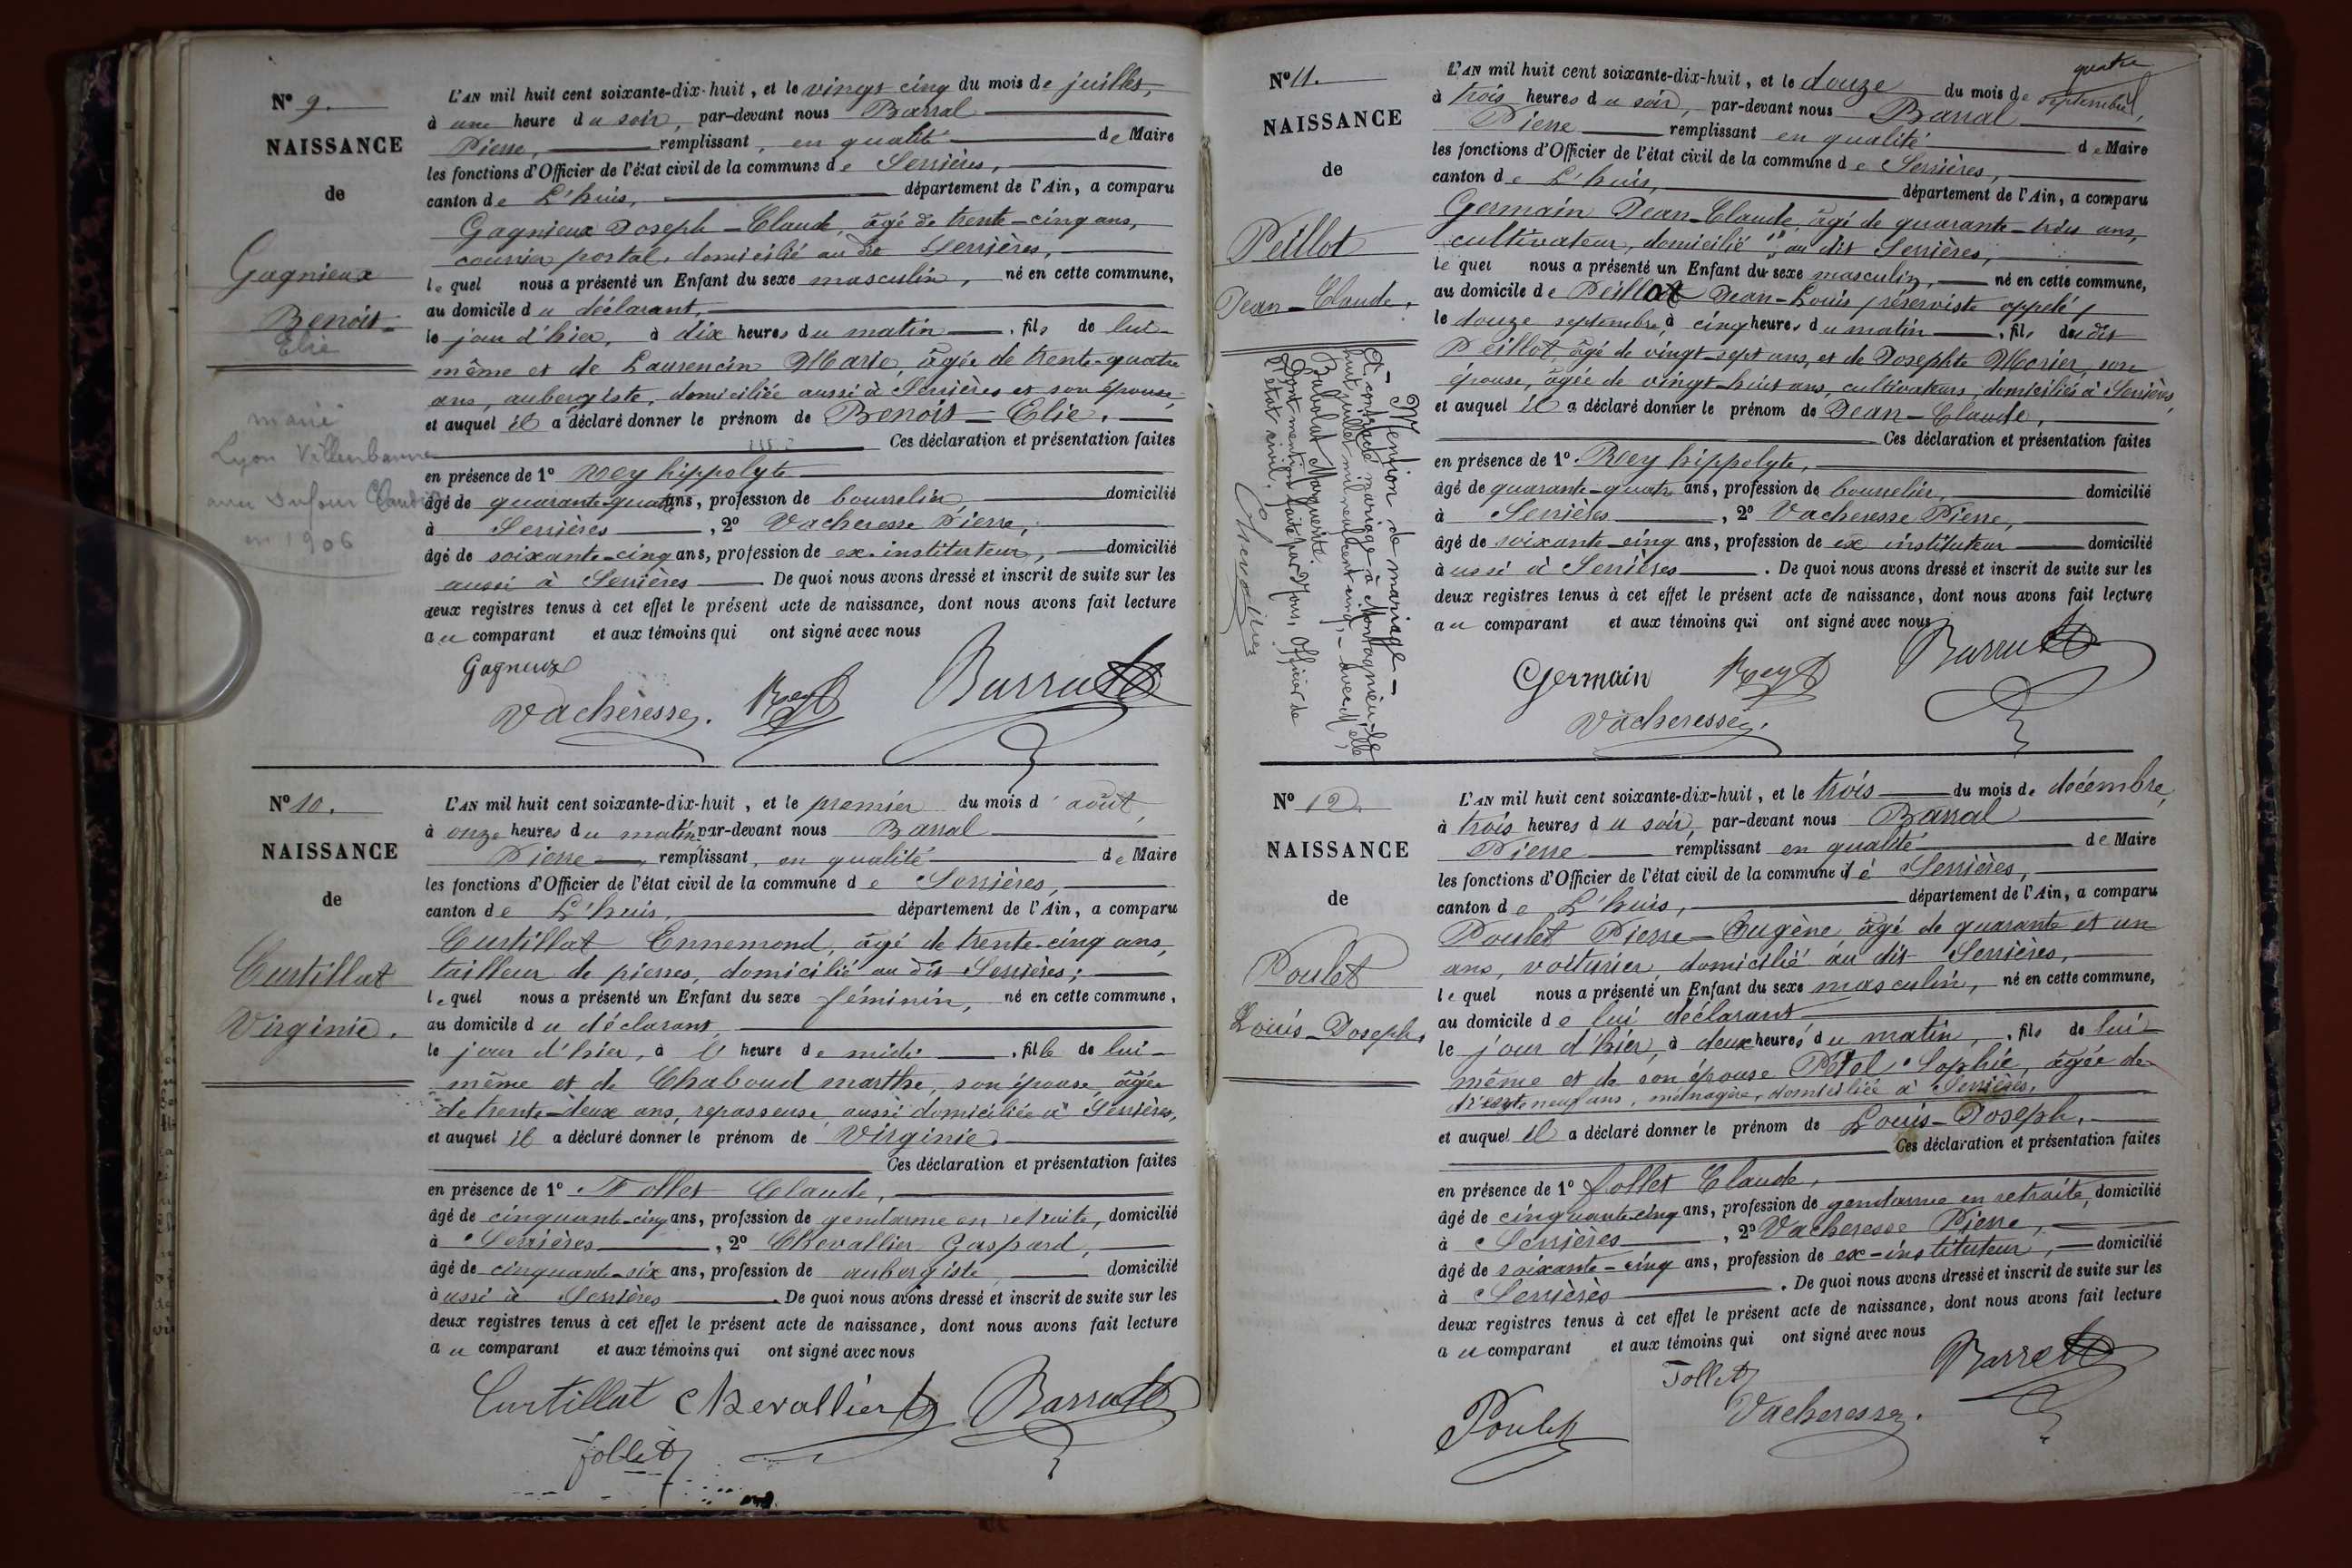 N° 9.
NAISSANCE
de
Gagnieux
Benoit-
Elie
marié
Lyon Villeurbanne
avec Dufour Claudi
en 1906
L'AN mil huit cent soixante-dix-huit, et le vingt-cinq du mois de juillet,
à une heure du soir, par-devant nous Barral
Pierre, remplissant, en qualité de Maire
les fonctions d'Officier de l'état civil de la commune de Serrières,
canton de L'huis, département de l'Ain, a comparu
Gagnieux Joseph-Claude, âgé de trente-cinq ans,
courrier postal, domicilié au dit Serrières,
lequel nous a présenté un Enfant du sexe masculin, né en cette commune,
au domicile du déclarant,
le jour d'hier, à dix heures du matin, fils de lui-
même et de Laurencin Marie, âgée de trente-quatre
ans, aubergiste, domiciliée aussi à Serrières et son épouse,
et auquel il a déclaré donner le prénom de Benoit-Elie.
Ces déclaration et présentation faites
en présence de 1° Rey hippolyte
âgé de quarante-quatre ans, profession de bourrelier, domicilié
à Serrières, 2° Vacheresse Pierre,
âgé de soixante-cinq ans, profession de ex-instituteur, domicilié
aussi à Serrières. De quoi nous avons dressé et inscrit de suite sur les
deux registres tenus à cet effet le présent acte de naissance, dont nous avons fait lecture
au comparant et aux témoins qui ont signé avec nous
Gagneux
Vacheresse. Rey Barral
N° 10.
NAISSANCE
de
Curtillat
Virginie.
L'AN mil huit cent soixante-dix-huit, et le premier du mois d'août,
à onze heures du matin, par-devant nous Barral
Pierre, remplissant, en qualité de Maire
les fonctions d'Officier de l'état civil de la commune de Serrières,
canton de L'huis, département de l'Ain, a comparu
Curtillat Ennemond, âgé de trente-cinq ans,
tailleur de pierres, domicilié au dit Serrières;
lequel nous a présenté un Enfant du sexe féminin, né en cette commune,
au domicile du déclarant,
le jour d'hier, à l'heure de midi, fille de lui-
même et de Chaboud marthe, son épouse, âgée
de trente-deux ans, repasseuse, aussi domiciliée à Serrières,
et auquel il a déclaré donner le prénom de Virginie.
Ces déclaration et présentation faites
en présence de 1° Follet Claude,
âgé de cinquante-cinq ans, profession de gendarme en retraite, domicilié
à Serrières, 2° Chevallier Gaspard,
âgé de cinquante-six ans, profession de aubergiste, domicilié
aussi à Serrières. De quoi nous avons dressé et inscrit de suite sur les
deux registres tenus à cet effet le présent acte de naissance, dont nous avons fait lecture
au comparant et aux témoins qui ont signé avec nous
Curtillat Chevallier Barral
follet
N° 11.
NAISSANCE
de
Peillot
Jean-Claude.
Mention de mariage-
A contracté mariage à Montagnieu le
huit juillet mil neuf cent cinq, - avec Melle
Babolat Marguerite.
Dont mention faite par Nous, Officier de
l'état civil.
L'AN mil huit cent soixante-dix-huit, et le douze du mois de septembre,
quatre
à trois heures du soir, par-devant nous Barral
Pierre remplissant en qualité de Maire
les fonctions d'Officier de l'état civil de la commune de Serrières,
canton de L'huis, département de l'Ain, a comparu
Germain Jean-Claude, âgé de quarante-trois ans,
cultivateur, domicilié au dit Serrières,
lequel nous a présenté un Enfant du sexe masculin, né en cette commune,
au domicile de Peillot Jean-Louis réserviste appelé,
le douze septembre, à cinq heures du matin, fils du dit
Peillot, âgé de vingt-sept ans, et de Josephte Morier, son
épouse, âgée de vingt-huit ans, cultivateurs, domiciliés à Serrières,
et auquel il a déclaré donner le prénom de Jean-Claude,
Ces déclaration et présentation faites
en présence de 1° Rey hippolyte,
âgé de quarante-quatre ans, profession de bourrelier, domicilié
à Serrières, 2° Vacheresse Pierre,
âgé de soixante-cinq ans, profession de ex instituteur domicilié
aussi à Serrières. De quoi nous avons dressé et inscrit de suite sur les
deux registres tenus à cet effet le présent acte de naissance, dont nous avons fait lecture
au comparant et aux témoins qui ont signé avec nous
Germain Rey Barral
Vacheresse.
N° 12.
NAISSANCE
de
Poulet
Louis-Joseph.
L'AN mil huit cent soixante-dix-huit, et le trois du mois de décembre,
à trois heures du soir, par-devant nous Barral
Pierre remplissant en qualité de Maire
les fonctions d'Officier de l'état civil de la commune de Serrières,
canton de L'huis, département de l'Ain, a comparu
Poulet Pierre-Eugène âgé de quarante et un
ans, voiturier, domicilié au dit Serrières,
lequel nous a présenté un Enfant du sexe masculin, né en cette commune,
au domicile de lui déclarant
le jour d'hier, à deux heures du matin, fils de lui-
même et de son épouse Pétel Sophie, âgée de
trente neuf ans, ménagère, domiciliée à Serrières,
et auquel il a déclaré donner le prénom de Louis-Joseph,
Ces déclaration et présentation faites
en présence de 1° follet Claude,
âgé de cinquante-cinq ans, profession de gendarme en retraite, domicilié
à Serrières, 2° Vacheresse Pierre,
âgé de soixante-cinq ans, profession de ex-instituteur, domicilié
à Serrières. De quoi nous avons dressé et inscrit de suite sur les
deux registres tenus à cet effet le présent acte de naissance, dont nous avons fait lecture
au comparant et aux témoins qui ont signé avec nous
Follet Barral
Poulet Vacheresse.